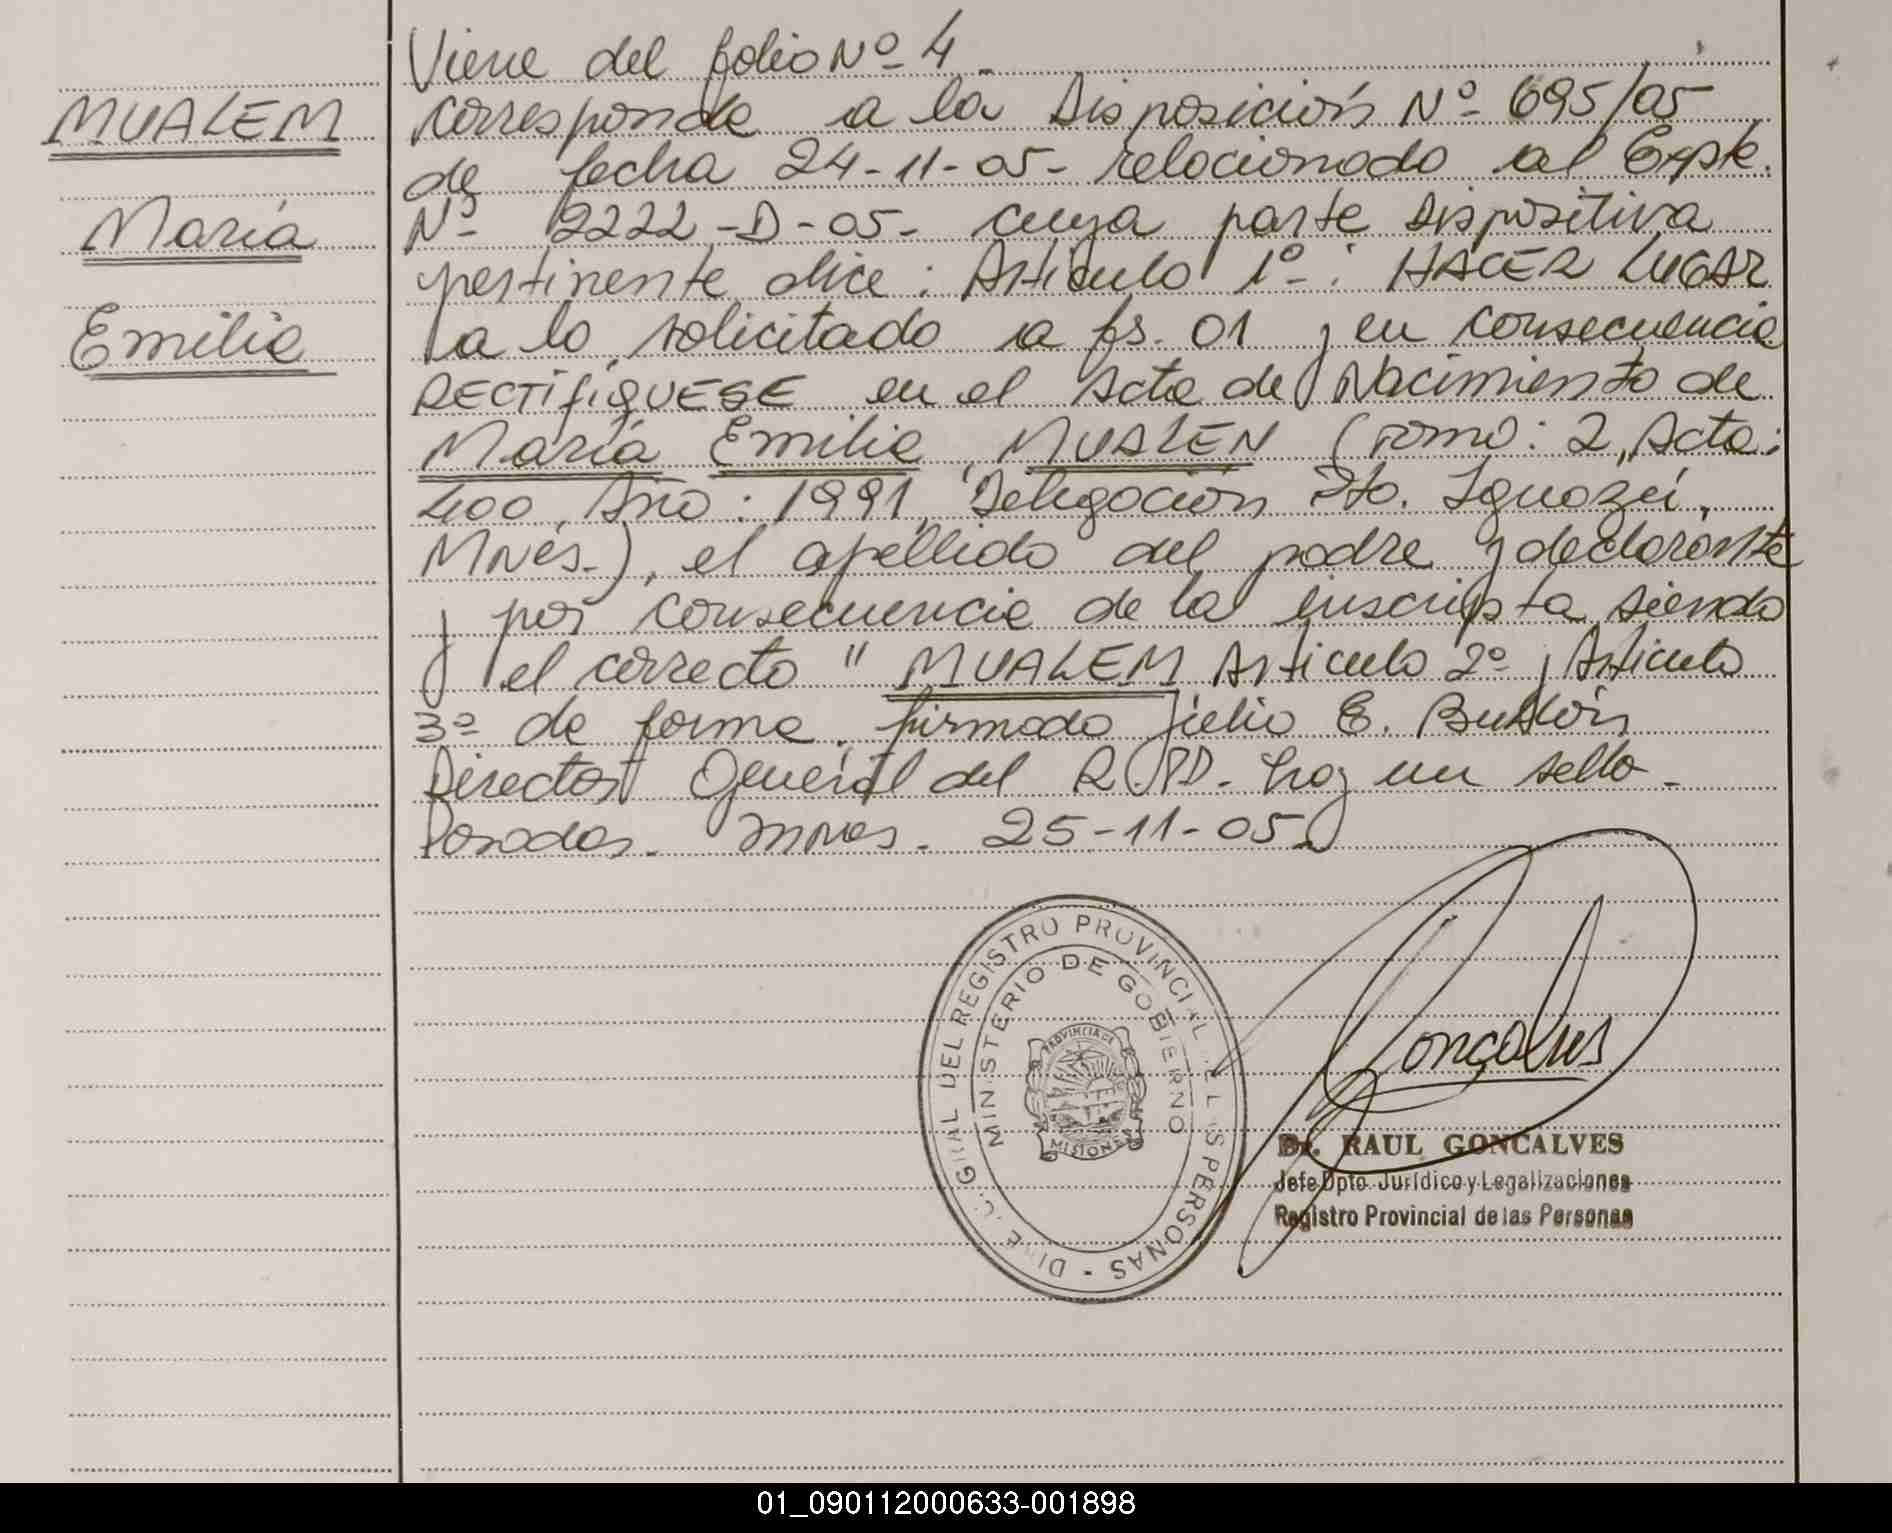 Viene del folio Nº 4
MUALEM
María
Emilia
corresponde a la Disposición Nº 695/05
de fecha 24-11-05- relacionado al Expte.
Nº 2222-D-05- cuya parte dispositiva
pertinente dice: Artículo 1º-: HACER LUGAR
a lo solicitado a fs. 01 y en consecuencia
RECTIFIQUESE en el Acta de Nacimiento de
María Emilia MUALEN (Tomo: 2, Acta:
400, Año: 1991, Delegación Pto. Iguazú,
Mnes.), el apellido del padre y declarante
y por consecuencia de la inscripta siendo
el correcto " MUALEM Artículo 2º y Artículo
3º de forma. firmado Julio E.
Director General del R.P.P. hay un sello-
Posadas. Mnes. 25-11-05
DIREC. GRAL DEL REGISTRO PROVINCIAL DE LAS PERSONAS -
MINISTERIO DE GOBIERNO
PROVINCIA DE
MISIONES
Gonçalves
Dr. RAUL GONCALVES
Jefe Dpto. Jurídico y Legalizaciones
Registro Provincial de las Personas
01_090112000633-001898